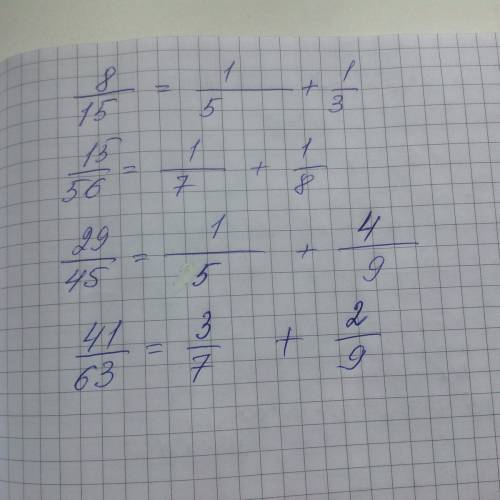 8/15 = 1/5 + 1/3
15/56 = 1/7 + 1/8
29/45 = 1/5 + 4/9
41/63 = 3/7 + 2/9